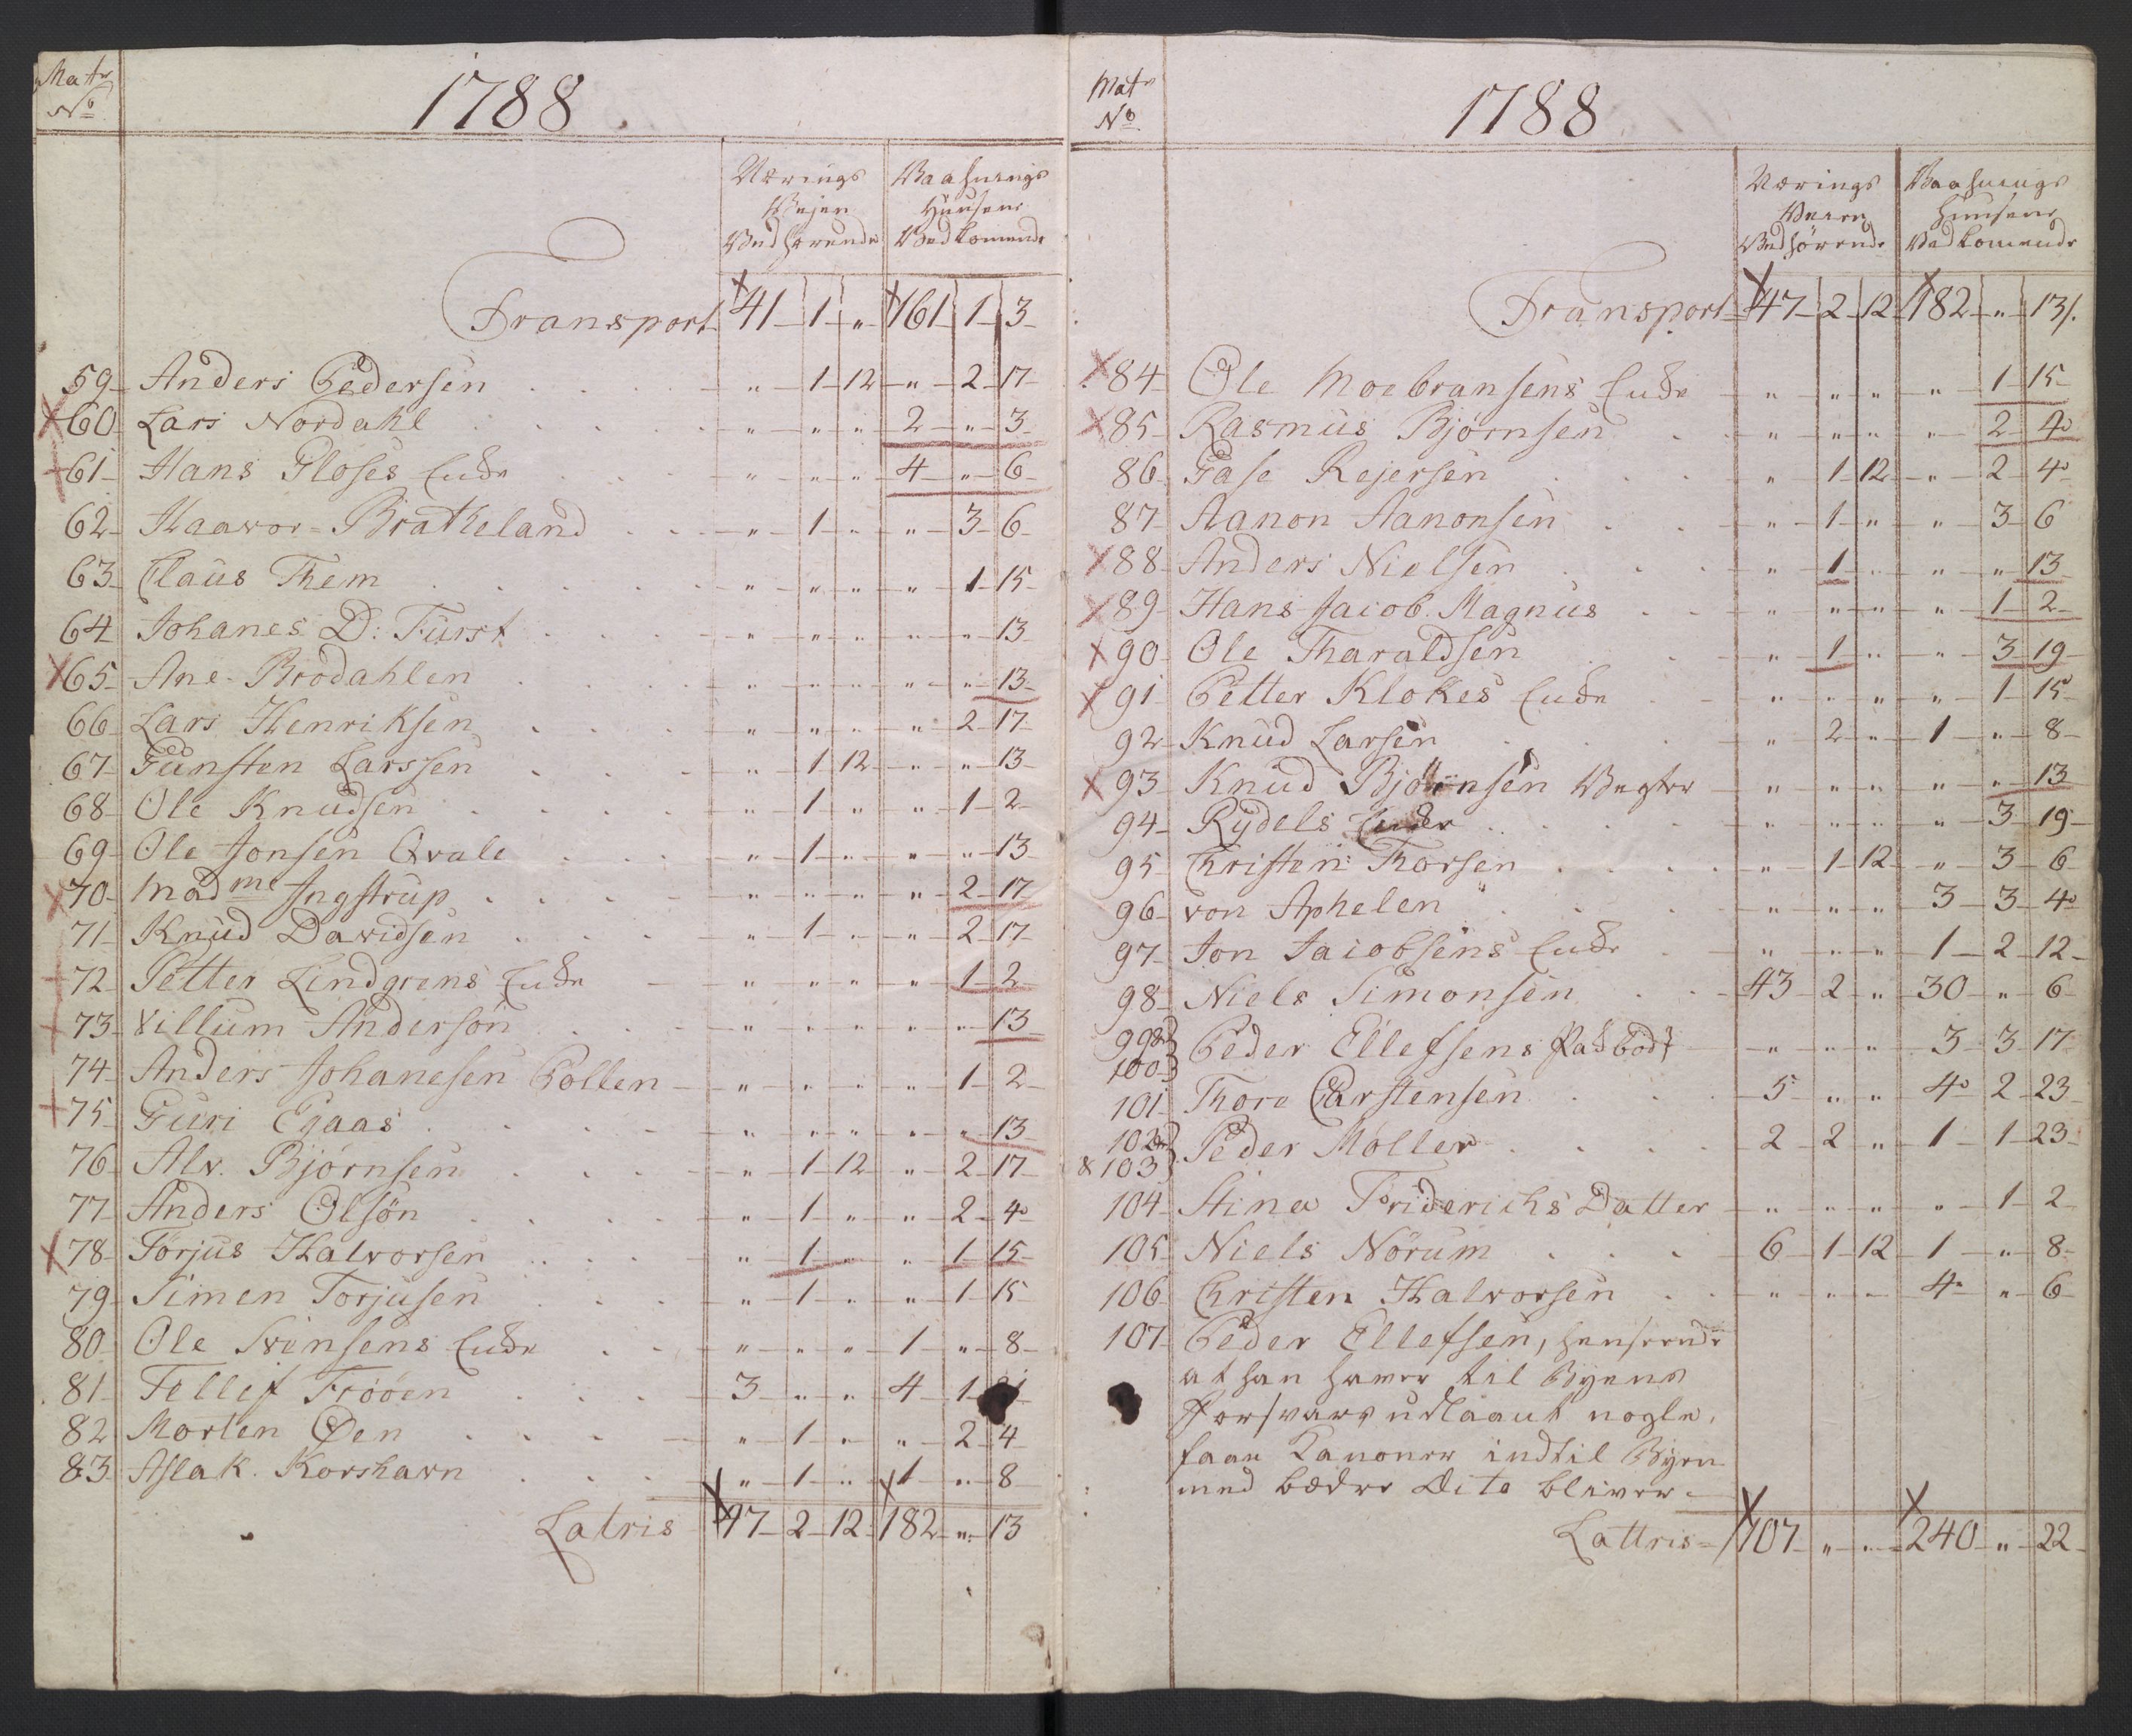 Matr
No
1788
Nærings
Vejen
Vedhørende
Vaahnings
Huusene
Vedkomende
Transport 41 1 " 161 1 3
59 Anders Pedersen " 1 12 " 2 17
60 Lars Nordahl " " " 2 " 3
61 Hans Gloses Enke " " " 4 " 6
62 Haavor Bratheland " 1 " " 3 6
63 Claus Them " " " " 1 15
64 Johanes D: Fürst " " " " " 13
65 Ane Brodahlen " " " " " 13
66 Lars Henriksen " " " " 2 17
67 Gunsten Larssen " 1 12 " " 13
68 Ole Knudsen " 1 " " 1 2
69 Ole Jonsen Qvale " 1 " " " 13
70 Madme Ingstrup " " " " 2 17
71 Knud Davidsen " 1 " " 2 17
72 Petter Lindgrens Enke " " " " 1 2
73 Villum Andersøn " " " " " 13
74 Anders Johanesen Pollen " " " " 1 2
75 Guri Egaas " " " " " 13
76 Alv. Bjørnsen " 1 12 " 2 17
77 Anders Olsøn " 1 " " 2 4
78 Torjus Halvorsen " 1 " " 1 15
79 Simen Torjusen " 1 " " 1 15
80 Ole Svensens Enke " " " 1 " 8
81 Tellif Frøøen 3 " " 4 1
82 Morten Øen " 1 " " 2 4
83 Aslak. Korshavn " 1 " 1 " 8
Latris 47 2 12 182 " 13
Matr
No
1788
Nærings
Veien
Vedhørende
Vaahnings
Huusene
Vedkomende
Transport 47 2 12 182 " 13
84 Ole Moebransens Enke " " " " 1 15
85 Rasmus Bjørnsen " " " " 2 4
86 Gase Rejersen " 1 12 " 2 4
87 Aanon Aanonsen " 1 " " 3 6
88 Anders Nielsen " 1 " " " 13
89 Hans Jacob Magnus " " " " 1 2
90 Ole Tharaldsen " 1 " " 3 19
91 Petter Klokes Enke " " " " 1 15
92 Knud Larsen " 2 " 1 " 8
93 Knud Bjørnsen Vegter " " " " " 13
94 Rydels Enke " " " " 3 19
95 Christen Thorsen " 1 12 " 3 6
96 von Aphelen " " " 3 3 4
97 Jon Jacobsens Enke " " " 1 2 12
98 Niels Simonsen 43 2 " 30 " 6
99 &
100 Peder Ellefsens Padbod " " " 3 3 17
101 Thore Carstensen 5 " " 4 2 23
102
& 103 Peder Møller 2 2 " 1 1 23
104 Stina Friderichs Datter " " " " 1 2
105 Niels Nørum 6 1 12 1 " 8
106 Christen Halvorsen " " " 4 " 6
107 Peder Ellefsen, henseende
at han haver til Byens
Forsvar udlaant nogle
faae Canoner indtil Byen
med bædre Dito bliver
Lattris 107 " " 240 " 22